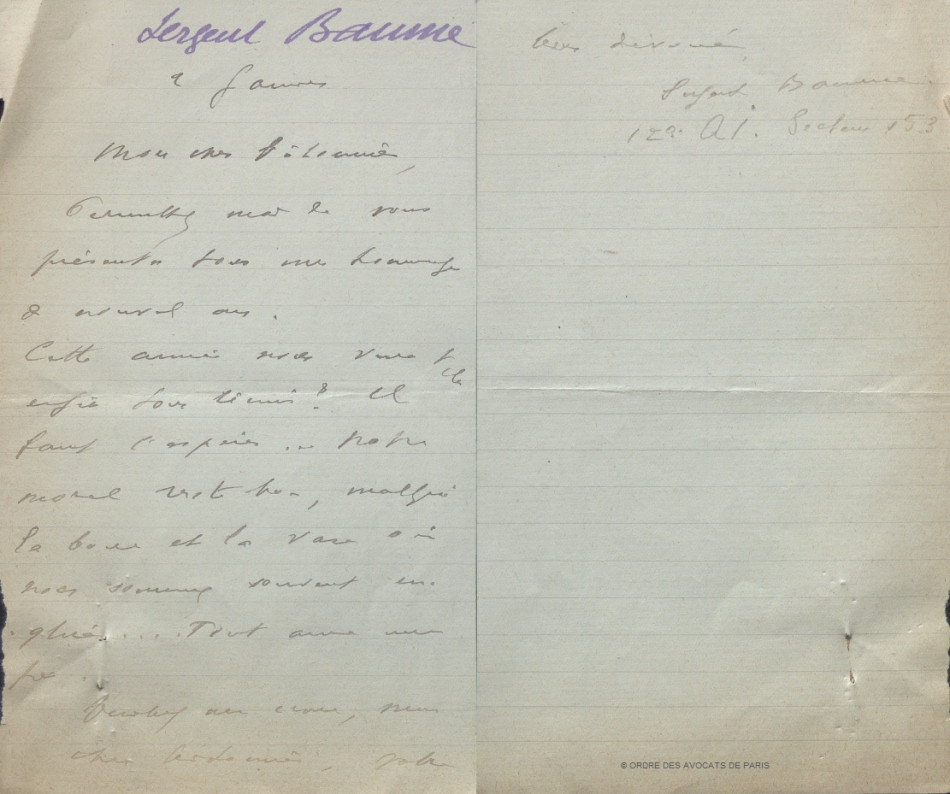 Sergent Baume
2 Janvier
Mon cher Bâtonnier,
Permettez moi de vous
présenter tous mes hommages
de nouvel an.
Cette année nous verra t
elle
enfin tous réunis? Il
faut l'espérer... Notre
moral reste bon, malgré
la boue et la vase où
nous sommes souvent en-
glués.... Tout aura une
fin.
Veuillez me croire, mon
cher bâtonnier, votre
bien dévoué,
Sergent Baume
123e Secteur 153
© ORDRE DES AVOCATS DE PARIS